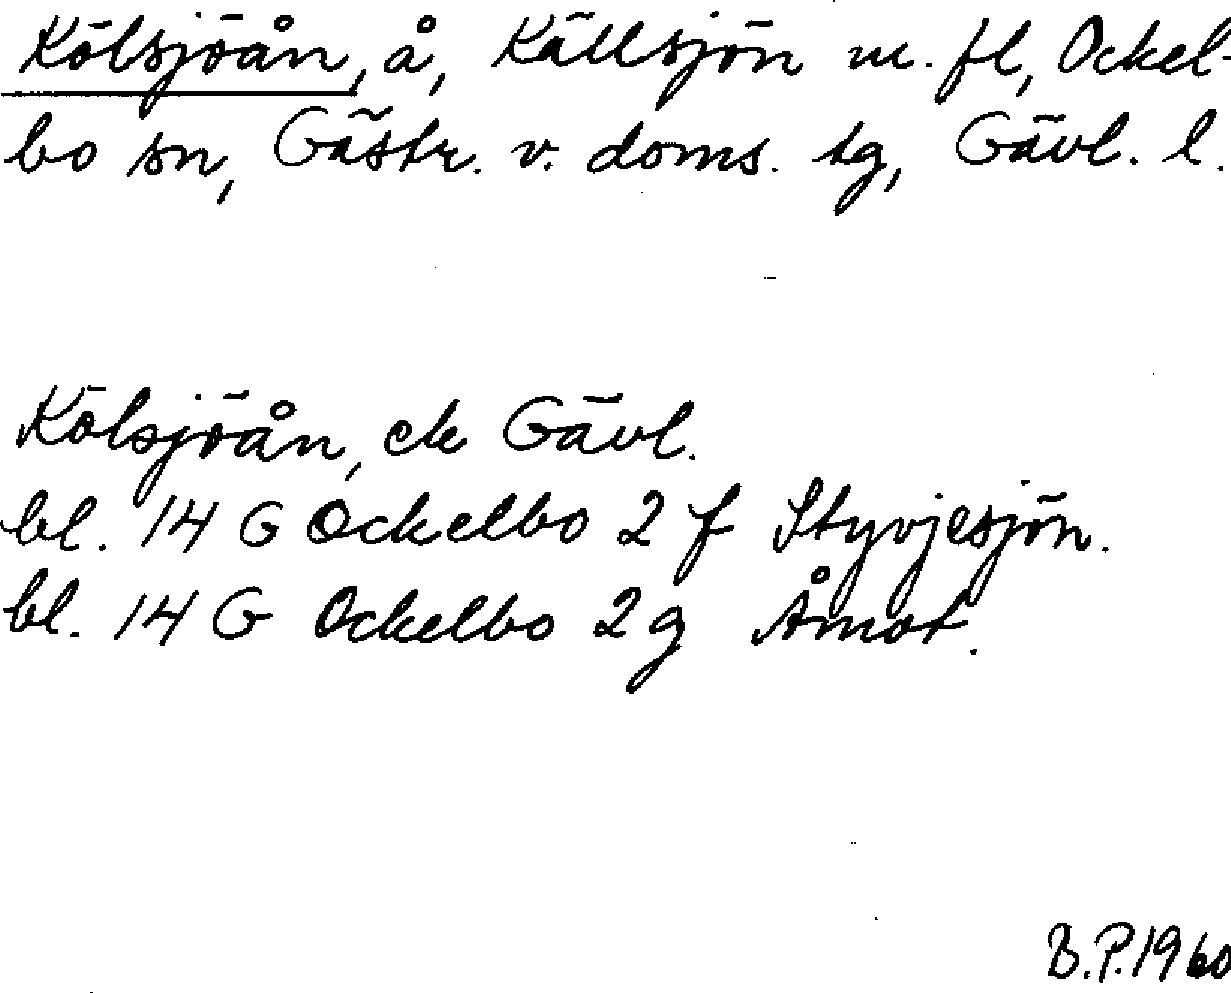 Kölsjöån, å, Källsjön m. fl, Ockel-
bo sn, Gästr. v. doms. tg, Gävl. l.
Kölsjöån, ek Gävl.
bl. 14 G Ockelbo 2 f Styvjesjön.
bl. 14 G Ockelbo 2g Åmot.
B.P.1960